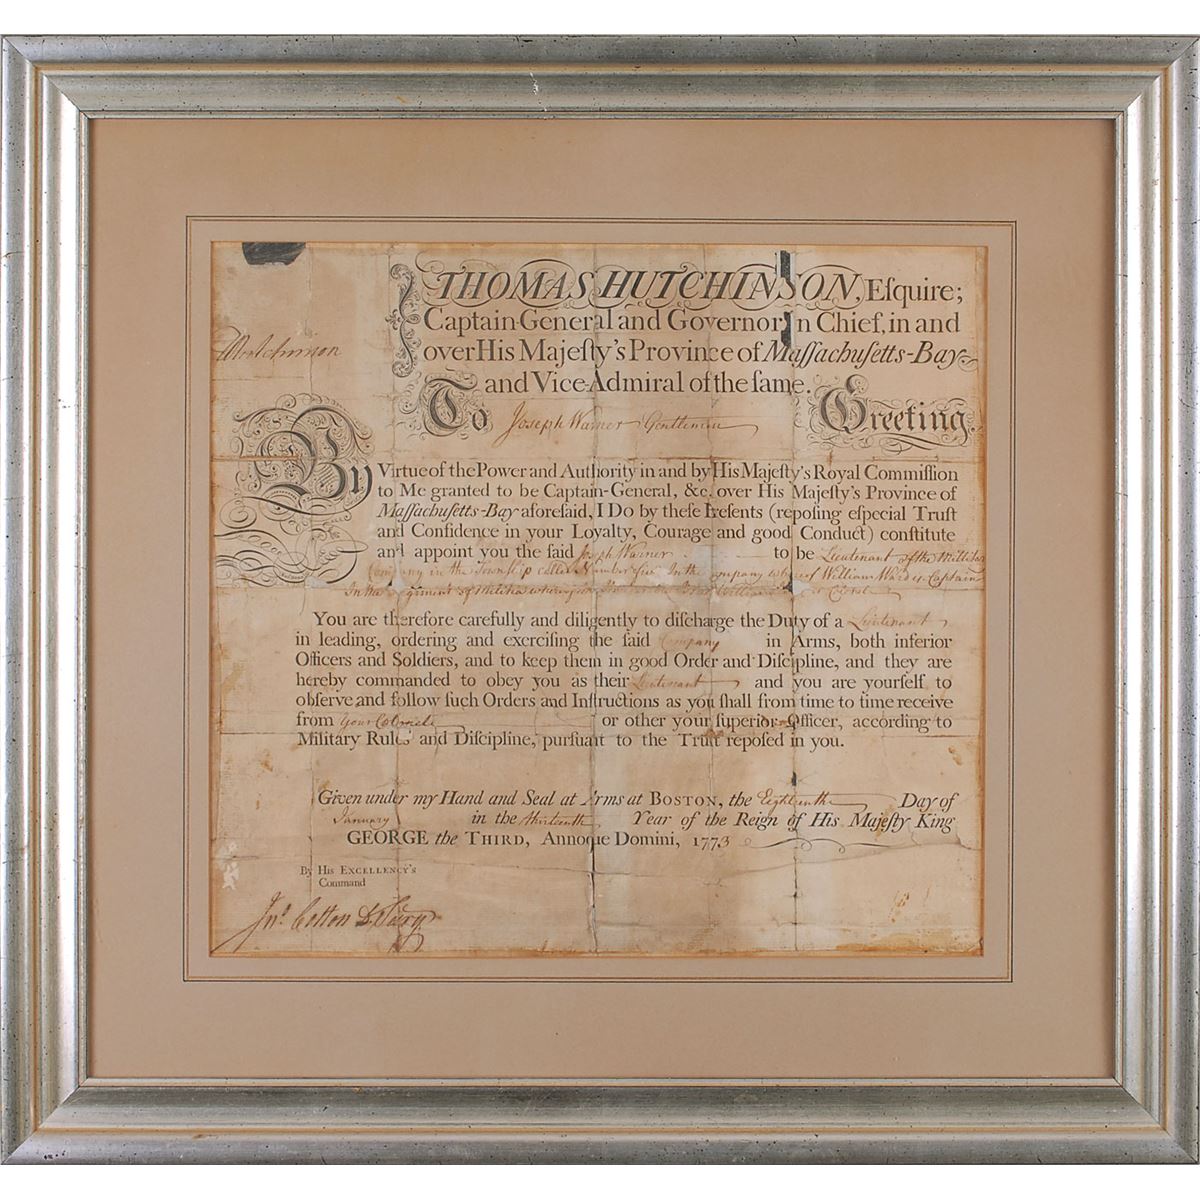 THOMAS HUTCHINSON, Eſquire;
Captain-General and Governor in Chief, in and
over His Majeſty's Province of Maſſachuſetts-Bay
and Vice-Admiral of the ſame.
THutchinson
To Joseph Warner Gentleman Greeting.
By Virtue of the Power and Authority in and by His Majeſty's Royal Commiſſion
to Me granted to be Captain-General, &c. over His Majeſty's Province of
Maſſachuſetts-Bay aforeſaid, I Do by theſe Preſents (repoſing eſpecial Truſt
and Confidence in your Loyalty, Courage and good Conduct) conſtitute
and appoint you the ſaid Joseph Warner to be Lieutenant of the Military
Company in the Township called Number five In the company whereof William Ward is Captain
In the Regiment of Militia whereof William is Colonel
You are therefore carefully and diligently to diſcharge the Duty of a Lieutenant
in leading, ordering and exerciſing the ſaid Company in Arms, both inferior
Officers and Soldiers, and to keep them in good Order and Diſcipline, and they are
hereby commanded to obey you as their Lieutenant and you are yourſelf to
obſerve and follow ſuch Orders and Inſtructions as you ſhall from time to time receive
from your Colonel or other your ſuperior Officer, according to
Military Rules and Diſcipline, purſuant to the Truſt repoſed in you.
Given under my Hand and Seal at Arms at BOSTON, the Eighteenth Day of
January in the thirteenth Year of the Reign of His Majeſty King
GEORGE the THIRD, Annoque Domini, 1773
By His EXCELLENCY'S
Command
Jnº Cotton D. Secry